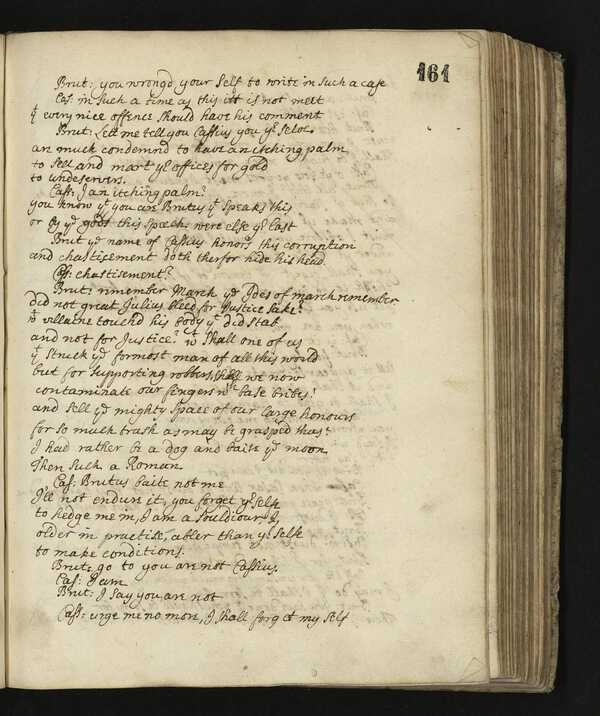 161
Brut: you wrongd your self to write in such a case
Cas: in such a time as this it is not meet
yt every nice offence should have his comment
Brut: Let me tell you Cassius you yr selfe
are much condemnd to have an itching palm
to sell and mart yr offices for gold
to undeservers.
Cass: I an itching palm?
you know yt you are Brutus yt speaks this
or by ye gods this speech were else yr last
Brut ye name of Cassius honors this corruption
and chastisement doth therfor hide his head.
Cas: chastisement?
Brut: rimember March ye Ides of march remember
did not great Julius bleed for Justice sake?
wt villaine touchd his body yt did stab
and not for Justice? wt shall one of us
yt struck ye formost man of all this world
but for supporting robbers, shall we now
contaminate our fingers wth base bribes?
and sell ye mighty space of our large honours
for so much trash as may be grasped thus?
I had rather be a dog and baite ye moon
Then such a Roman.
Cas: Brutus baite not me
I'll not endure it, you forget yr selfe
to hedge me in, I am a souldiour I,
older in practise, abler than yr selfe
to make conditions.
Brut: go to you are not Cassius.
Cas: I am
Brut: I say you are not
Cass: urge me no more, I shall forget my self